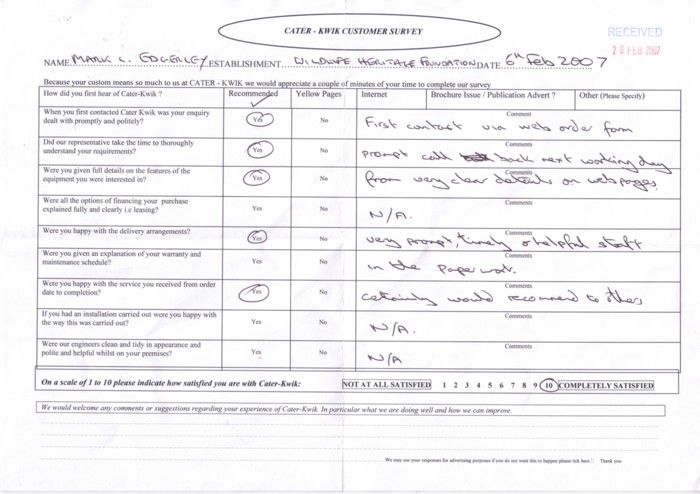 CATER - KWIK CUSTOMER SURVEY
RECEIVED
20 FEB 2007
NAME MARK L. EDGERLEY ESTABLISHMENT WILDLIFE HERITAGE FOUNDATION DATE 6th Feb 2007
Because your custom means so much to us at CATER - KWIK we would appreciate a couple of minutes of your time to complete our survey
How did you first hear of Cater-Kwik ? Recommended Yellow Pages Internet Brochure Issue / Publication Advert ? Other (Please Specify)
When you first contacted Cater Kwik was your enquiry dealt with promptly and politely? Yes No Comment
First contact via web order form
Did our representative take the time to thoroughly understand your requirements? Yes No Comments
prompt call back next working day
Were you given full details on the features of the equipment you were interested in? Yes No Comments
from very clear details on webpages.
Were all the options of financing your purchase explained fully and clearly i.e leasing? Yes No Comments
N/A.
Were you happy with the delivery arrangements? Yes No Comments
very prompt, timely & helpful staff
Were you given an explanation of your warranty and maintenance schedule? Yes No Comments
in the paperwork.
Were you happy with the service you received from order date to completion? Yes No Comments
certainly would recommend to others
If you had an installation carried out were you happy with the way this was carried out? Yes No Comments
N/A.
Were our engineers clean and tidy in appearance and polite and helpful whilst on your premises? Yes No Comments
N/A
On a scale of 1 to 10 please indicate how satisfied you are with Cater-Kwik: NOT AT ALL SATISFIED 1 2 3 4 5 6 7 8 9 10 COMPLETELY SATISFIED
We would welcome any comments or suggestions regarding your experience of Cater-Kwik. In particular what we are doing well and how we can improve.
We may use your responses for advertising purposes if you do not want this to happen please tick here Thank you